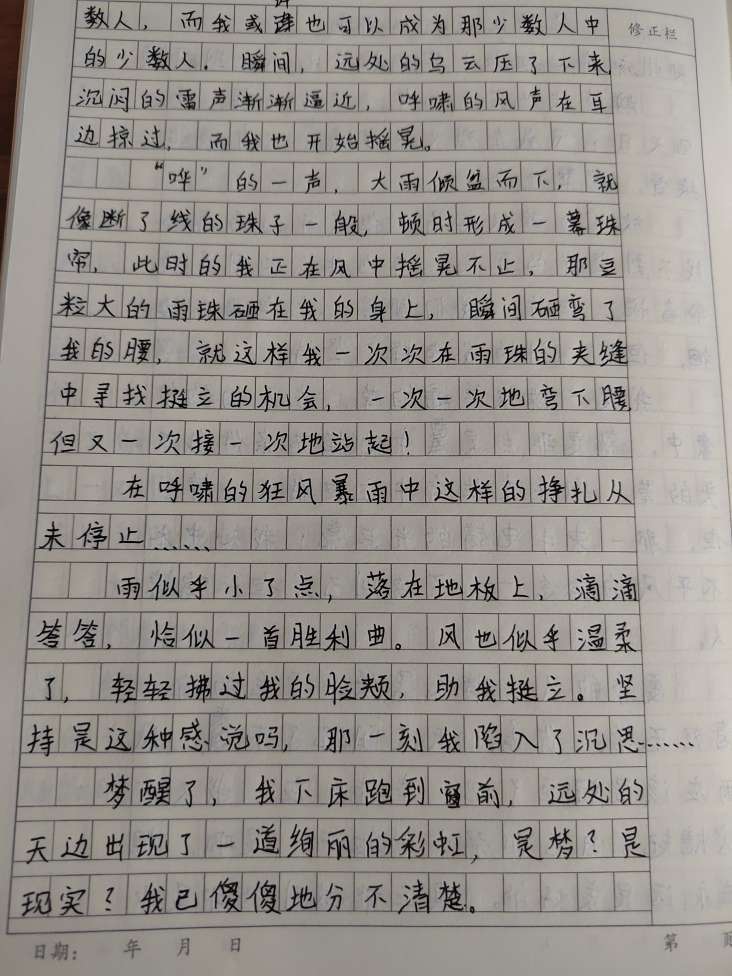 数人，而我或许也可以成为那少数人中
修正栏
的少数人．瞬间，远处的乌云压了下来
沉闷的雷声渐渐逼近，呼啸的风声在耳
边掠过，而我也开始摇晃。
“哗”的一声，大雨倾盆而下，就
像断了线的珠子一般，顿时形成一幕珠
帘，此时的我正在风中摇晃不止，那豆
粒大的雨珠砸在我的身上，瞬间砸弯了
我的腰，就这样我一次次在雨珠的夹缝
中寻找挺立的机会，一次一次地弯下腰
但又一次接一次地站起！
在呼啸的狂风暴雨中这样的挣扎从
未停止……
雨似乎小了点，落在地板上，滴滴
答答，恰似一首胜利曲。风也似乎温柔
了，轻轻拂过我的脸颊，助我挺立。坚
持是这种感觉吗，那一刻我陷入了沉思……
梦醒了，我下床跑到窗前，远处的
天边出现了一道绚丽的彩虹，是梦？是
现实？我已傻傻地分不清楚。
日期： 年 月 日
第